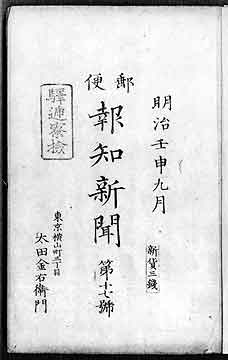 明治壬申九月
新貨三錢
郵便
報知新聞
第十七號
東京横山町三丁目
太田金右衛門
驛逓寮撿